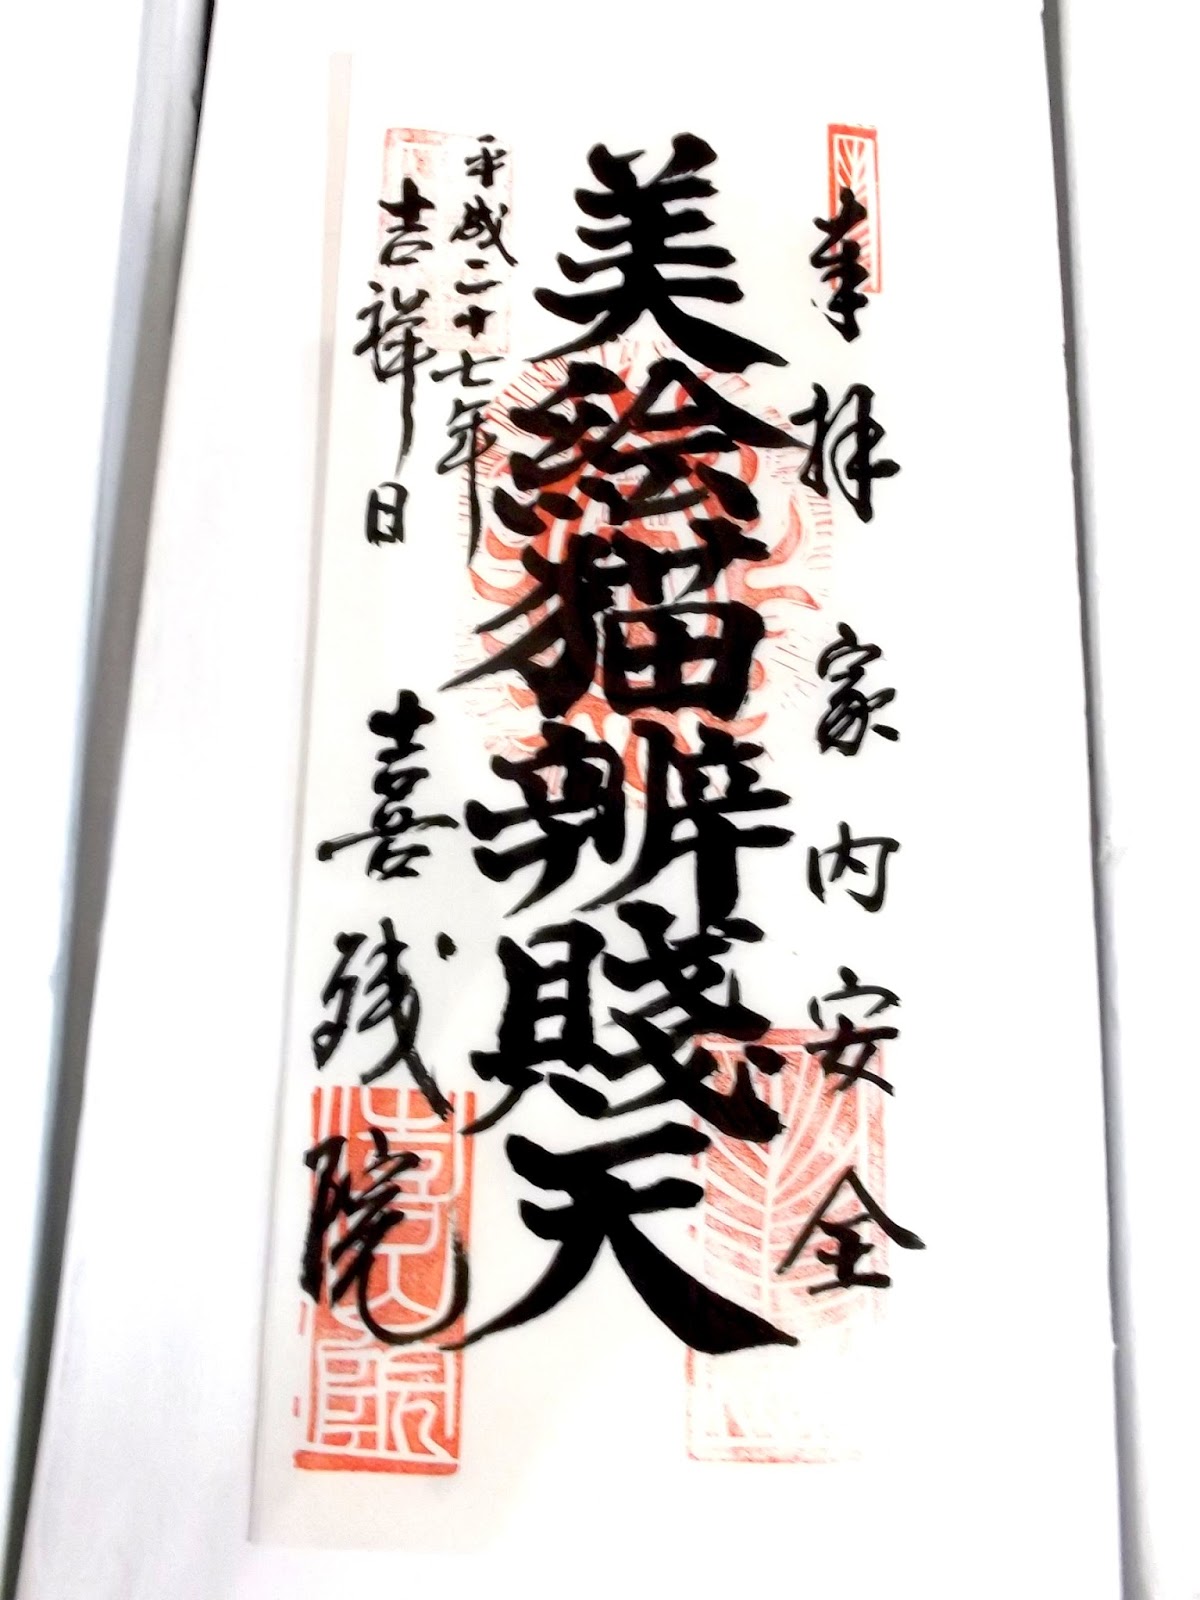 奉拝 家内安全
美絵猫辨賤天
平成二十七年
吉祥日 喜残院